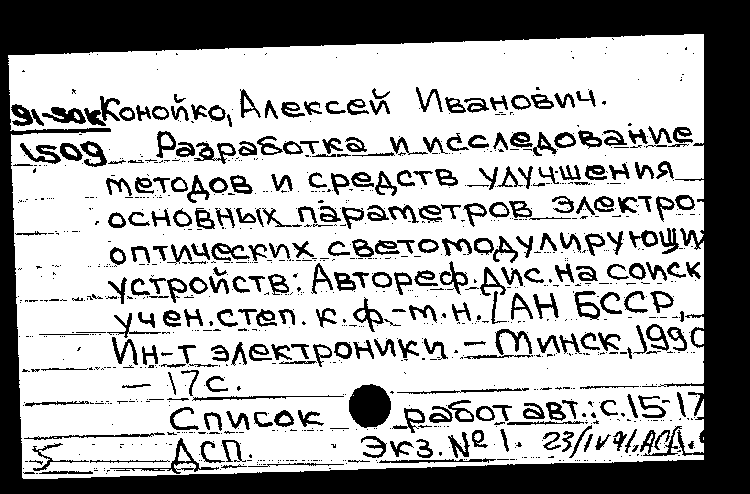 91-50к Конойко, Алексей Иванович.
1509 Разработка и исследование
методов и средств улучшения
основных параметров электро-
оптических светомодулирующих
устройств: Автореф.дис.на соиск
учен.степ. к.ф.-м.н. / АН БССР,
Ин-т электроники. – Минск, 1990
– 17с.
Список работ авт.: с.15-17
5 ДСП. Экз. № 1. 23/IV 91.